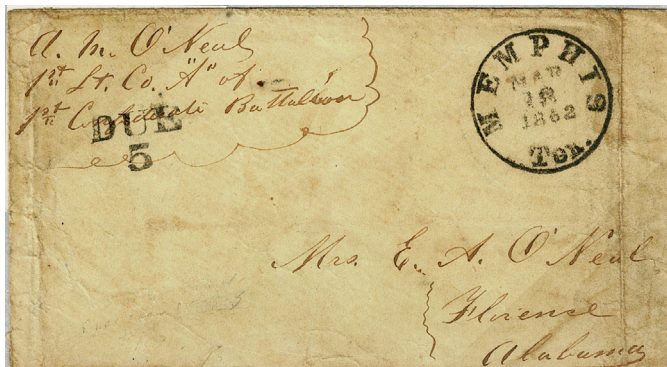 A. M. O'Neal
1st Lt. Co. "A" of
1st Confederate Battalion
DUE
5
MEMPHIS
MAR
18
1862
Ten.
Mrs. E. A. O'Neal
Florence
Alabama